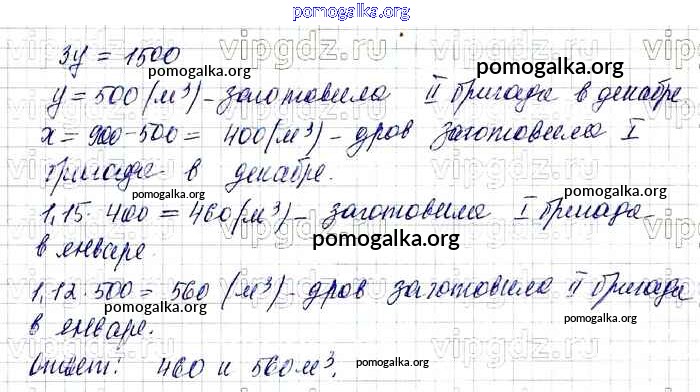 pomogalka.org
3y = 1500
pomogalka.org
y = 500 (м³) - заготовила II бригада в декабре
x = 900 - 500 = 400 (м³) - дров заготовила I
бригада в декабре.
pomogalka.org
pomogalka.org
1,15 · 400 = 460 (м³) - заготовила I бригада
в январе
pomogalka.org
1,12 · 500 = 560 (м³) - дров заготовила II бригада
pomogalka.org
pomogalka.org
в январе.
Ответ: 460 и 560 м³.
pomogalka.org
vipgdz.ru